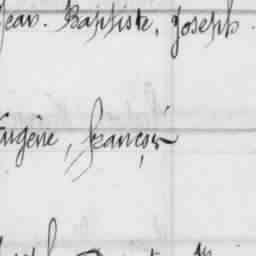 Jean. Baptiste, Joseph.
Eugène, françois